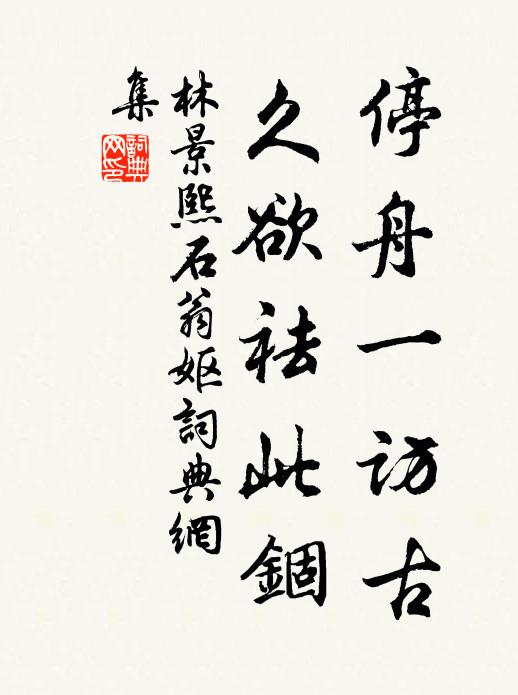 停舟一訪古
久欲祛此錮
林景熙石翁嫗詞典網
集
詞典
网印